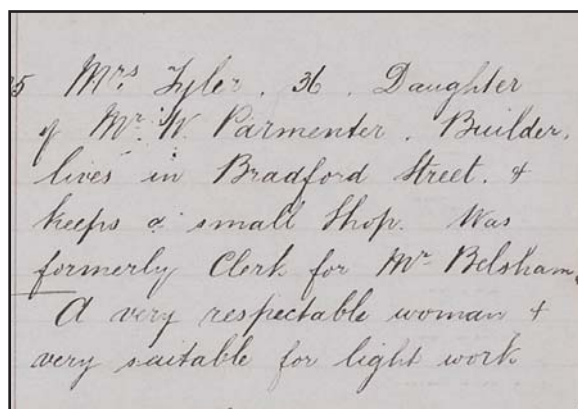 5 Mrs Tyler. 36. Daughter
of Mr. W. Parmenter. Builder.
lives in Bradford Street. &
keeps a small Shop. Was
formerly Clerk for Mr Belsham.
A very respectable woman &
very suitable for light work